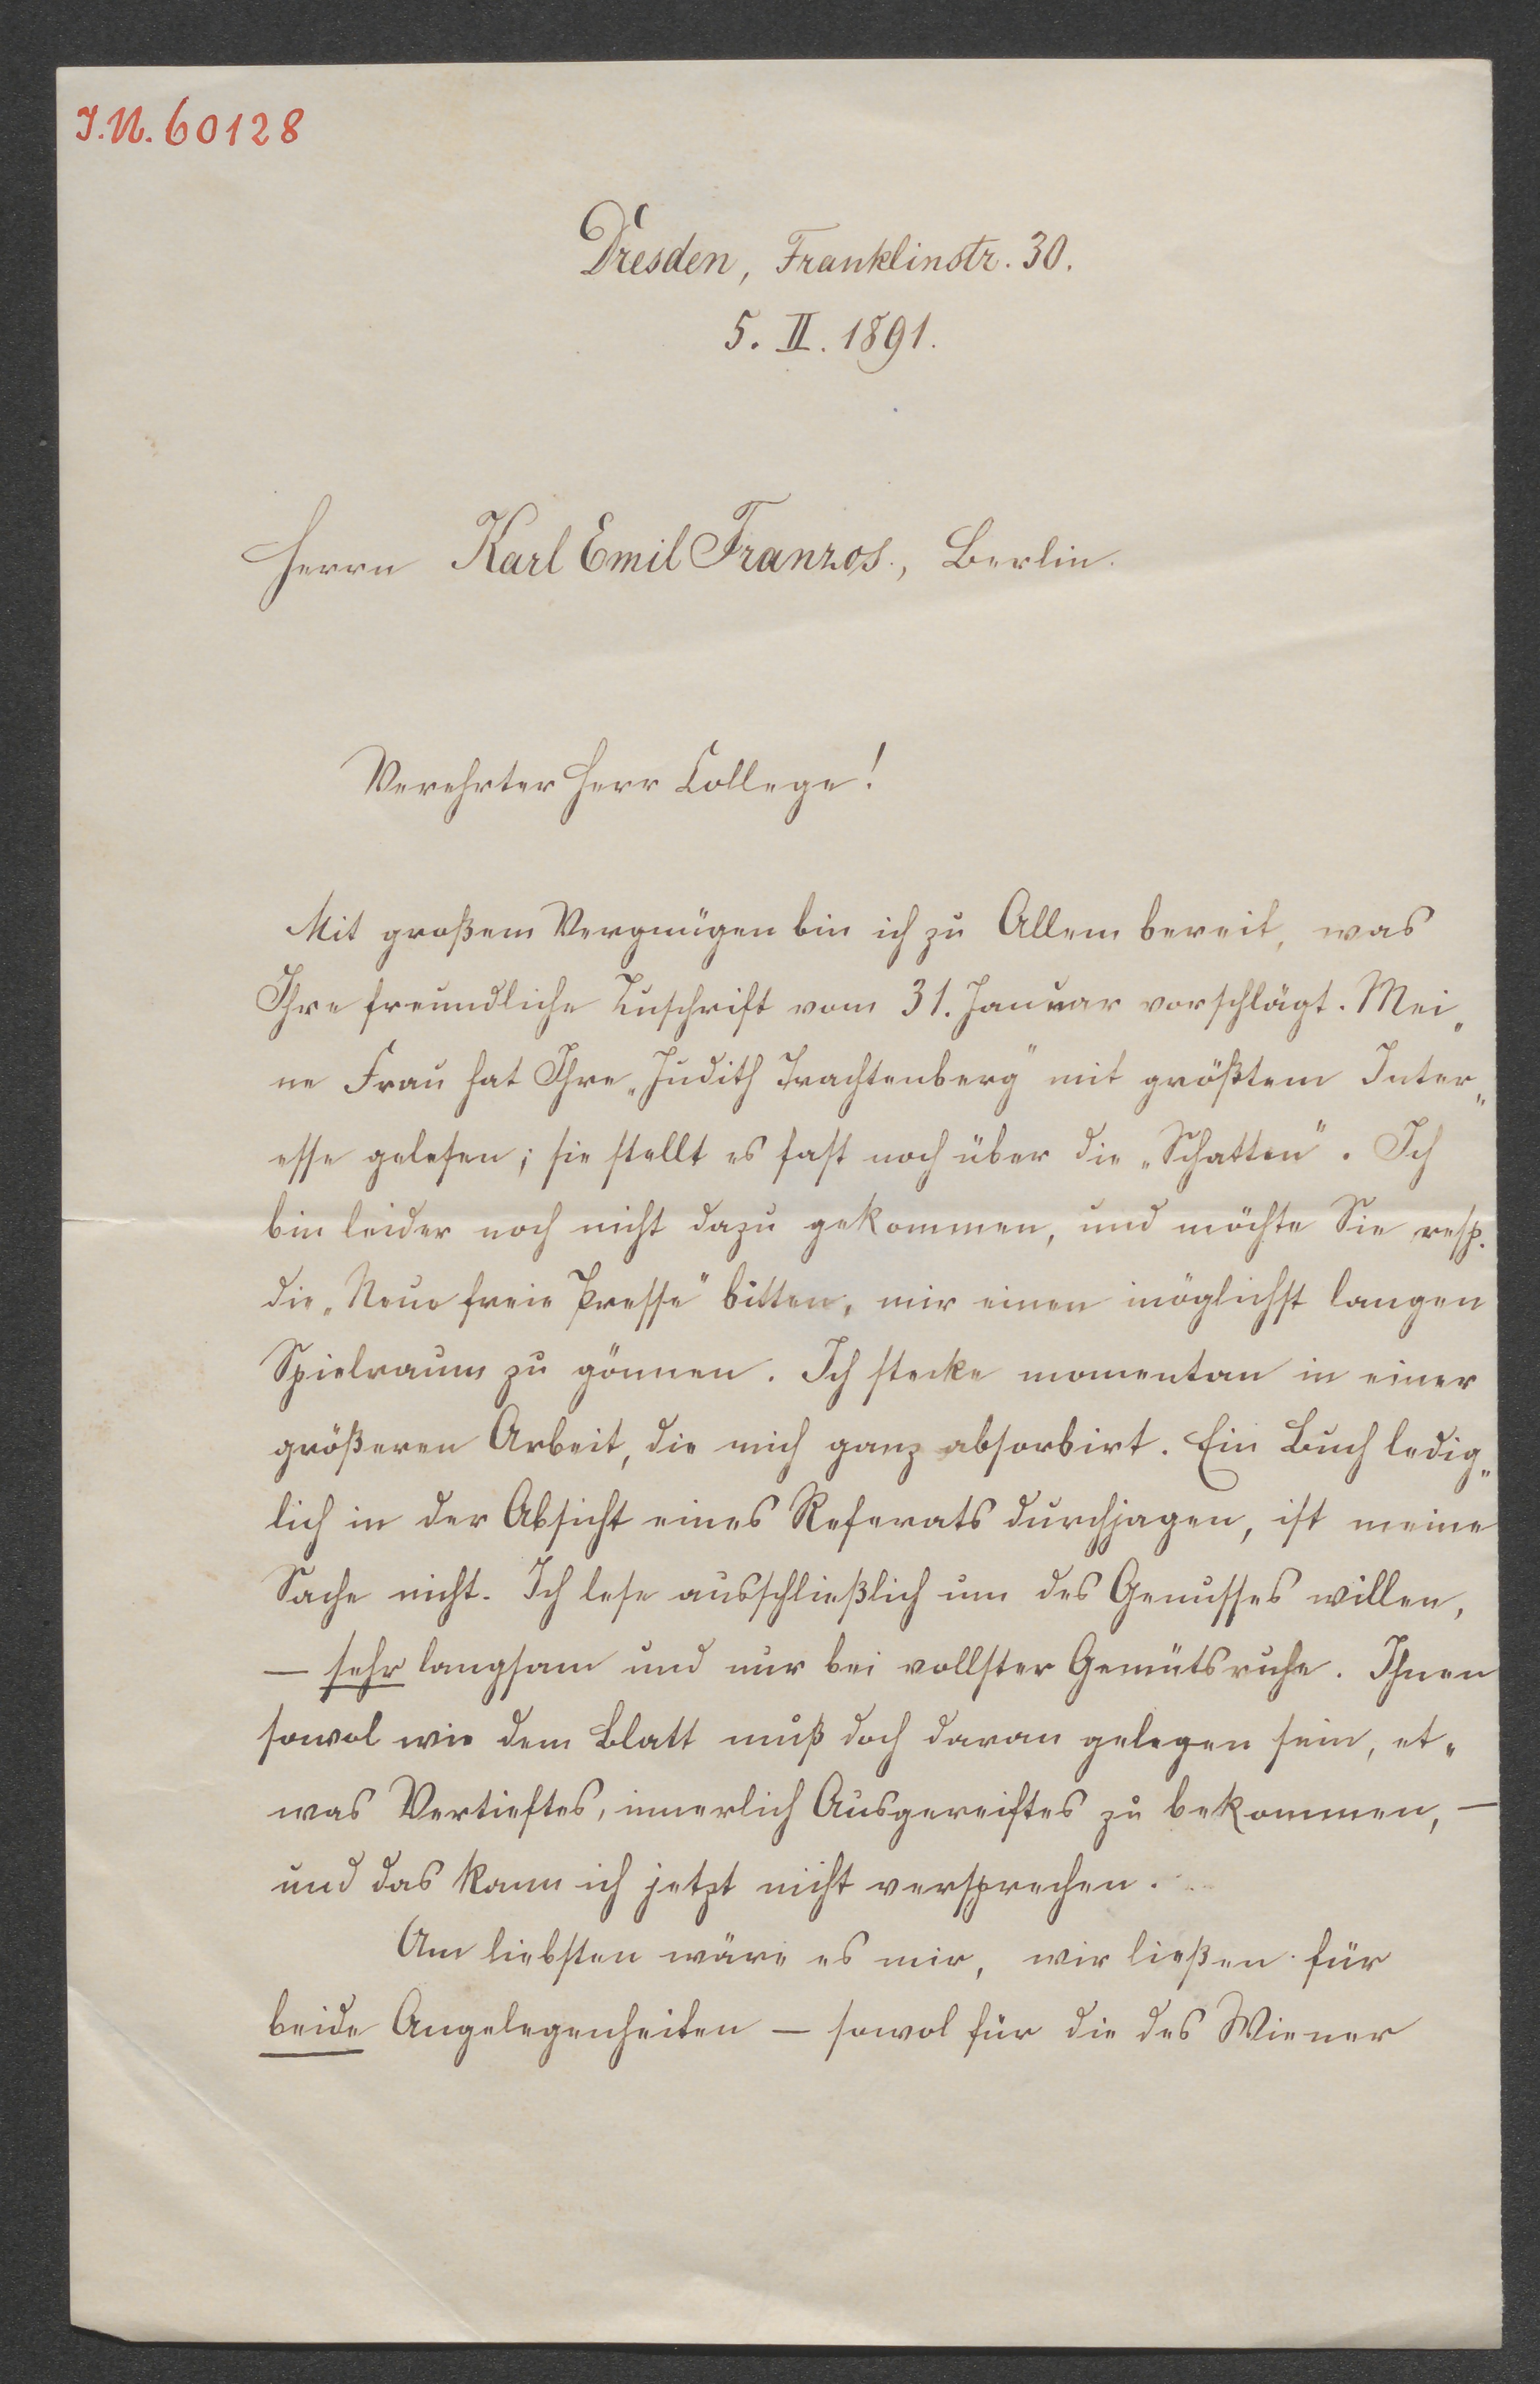 I.N. 60128
Dresden, Franklinstr. 30.
5. II. 1891.
Herrn Karl Emil Franzos., Berlin.
Verehrter Herr College!
Mit großem Vergnügen bin ich zu Allem bereit, was
Ihre freundliche Zuschrift vom 31. Januar vorschlägt. Mei„
ne Frau hat Ihre „Judith Trachtenberg" mit größtem Inter„
esse gelesen; sie stellt es fast noch über die „Schatten". Ich
bin leider noch nicht dazu gekommen, und möchte Sie resp.
die „Neue freie Presse" bitten, mir einen möglichst langen
Spielraum zu gönnen. Ich stecke momentan in einer
größeren Arbeit, die mich ganz absorbirt. Ein Buch ledig„
lich in der Absicht eines Referats durchjagen, ist meine
Sache nicht. Ich lese ausschließlich um des Genusses willen,
— sehr langsam und nur bei vollster Gemütsruhe. Ihnen
sowol wie dem Blatt muß doch daran gelegen sein, et„
was Vertieftes, innerlich Ausgereiftes zu bekommen, —
und das kann ich jetzt nicht versprechen.
Am liebsten wäre es mir, wir ließen für
beide Angelegenheiten — sowol für die des Wiener